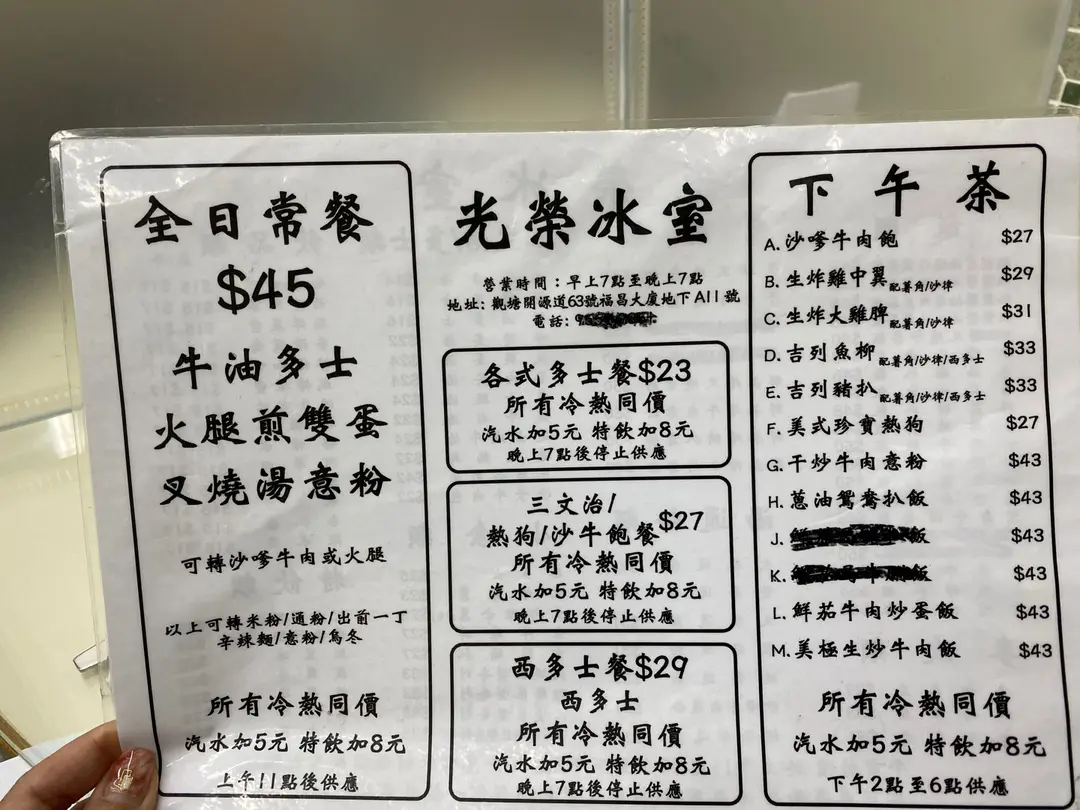 全日常餐
$45
牛油多士
火腿煎雙蛋
叉燒湯意粉
可轉沙嗲牛肉或火腿
以上可轉米粉/通粉/出前一丁
辛辣麵/意粉/烏冬
所有冷熱同價
汽水加5元 特飲加8元
上午11點後供應
光榮冰室
營業時間：早上7點至晚上7點
地址: 觀塘開源道63號福昌大廈地下A11號
電話:
各式多士餐$23
所有冷熱同價
汽水加5元 特飲加8元
晚上7點後停止供應
三文治/
熱狗/沙牛飽餐$27
所有冷熱同價
汽水加5元 特飲加8元
晚上7點後停止供應
西多士餐$29
西多士
所有冷熱同價
汽水加5元 特飲加8元
晚上7點後停止供應
下午茶
A. 沙嗲牛肉飽 $27
B. 生炸雞中翼配薯角/沙律 $29
C. 生炸大雞髀配薯角/沙律 $31
D. 吉列魚柳配薯角/沙律/西多士 $33
E. 吉列豬扒配薯角/沙律/西多士 $33
F. 美式珍寶熱狗 $27
G. 干炒牛肉意粉 $43
H. 蔥油鴛鴦扒飯 $43
J. 飯 $43
K. 飯 $43
L. 鮮茄牛肉炒蛋飯 $43
M. 美極生炒牛肉飯 $43
所有冷熱同價
汽水加5元 特飲加8元
下午2點至6點供應